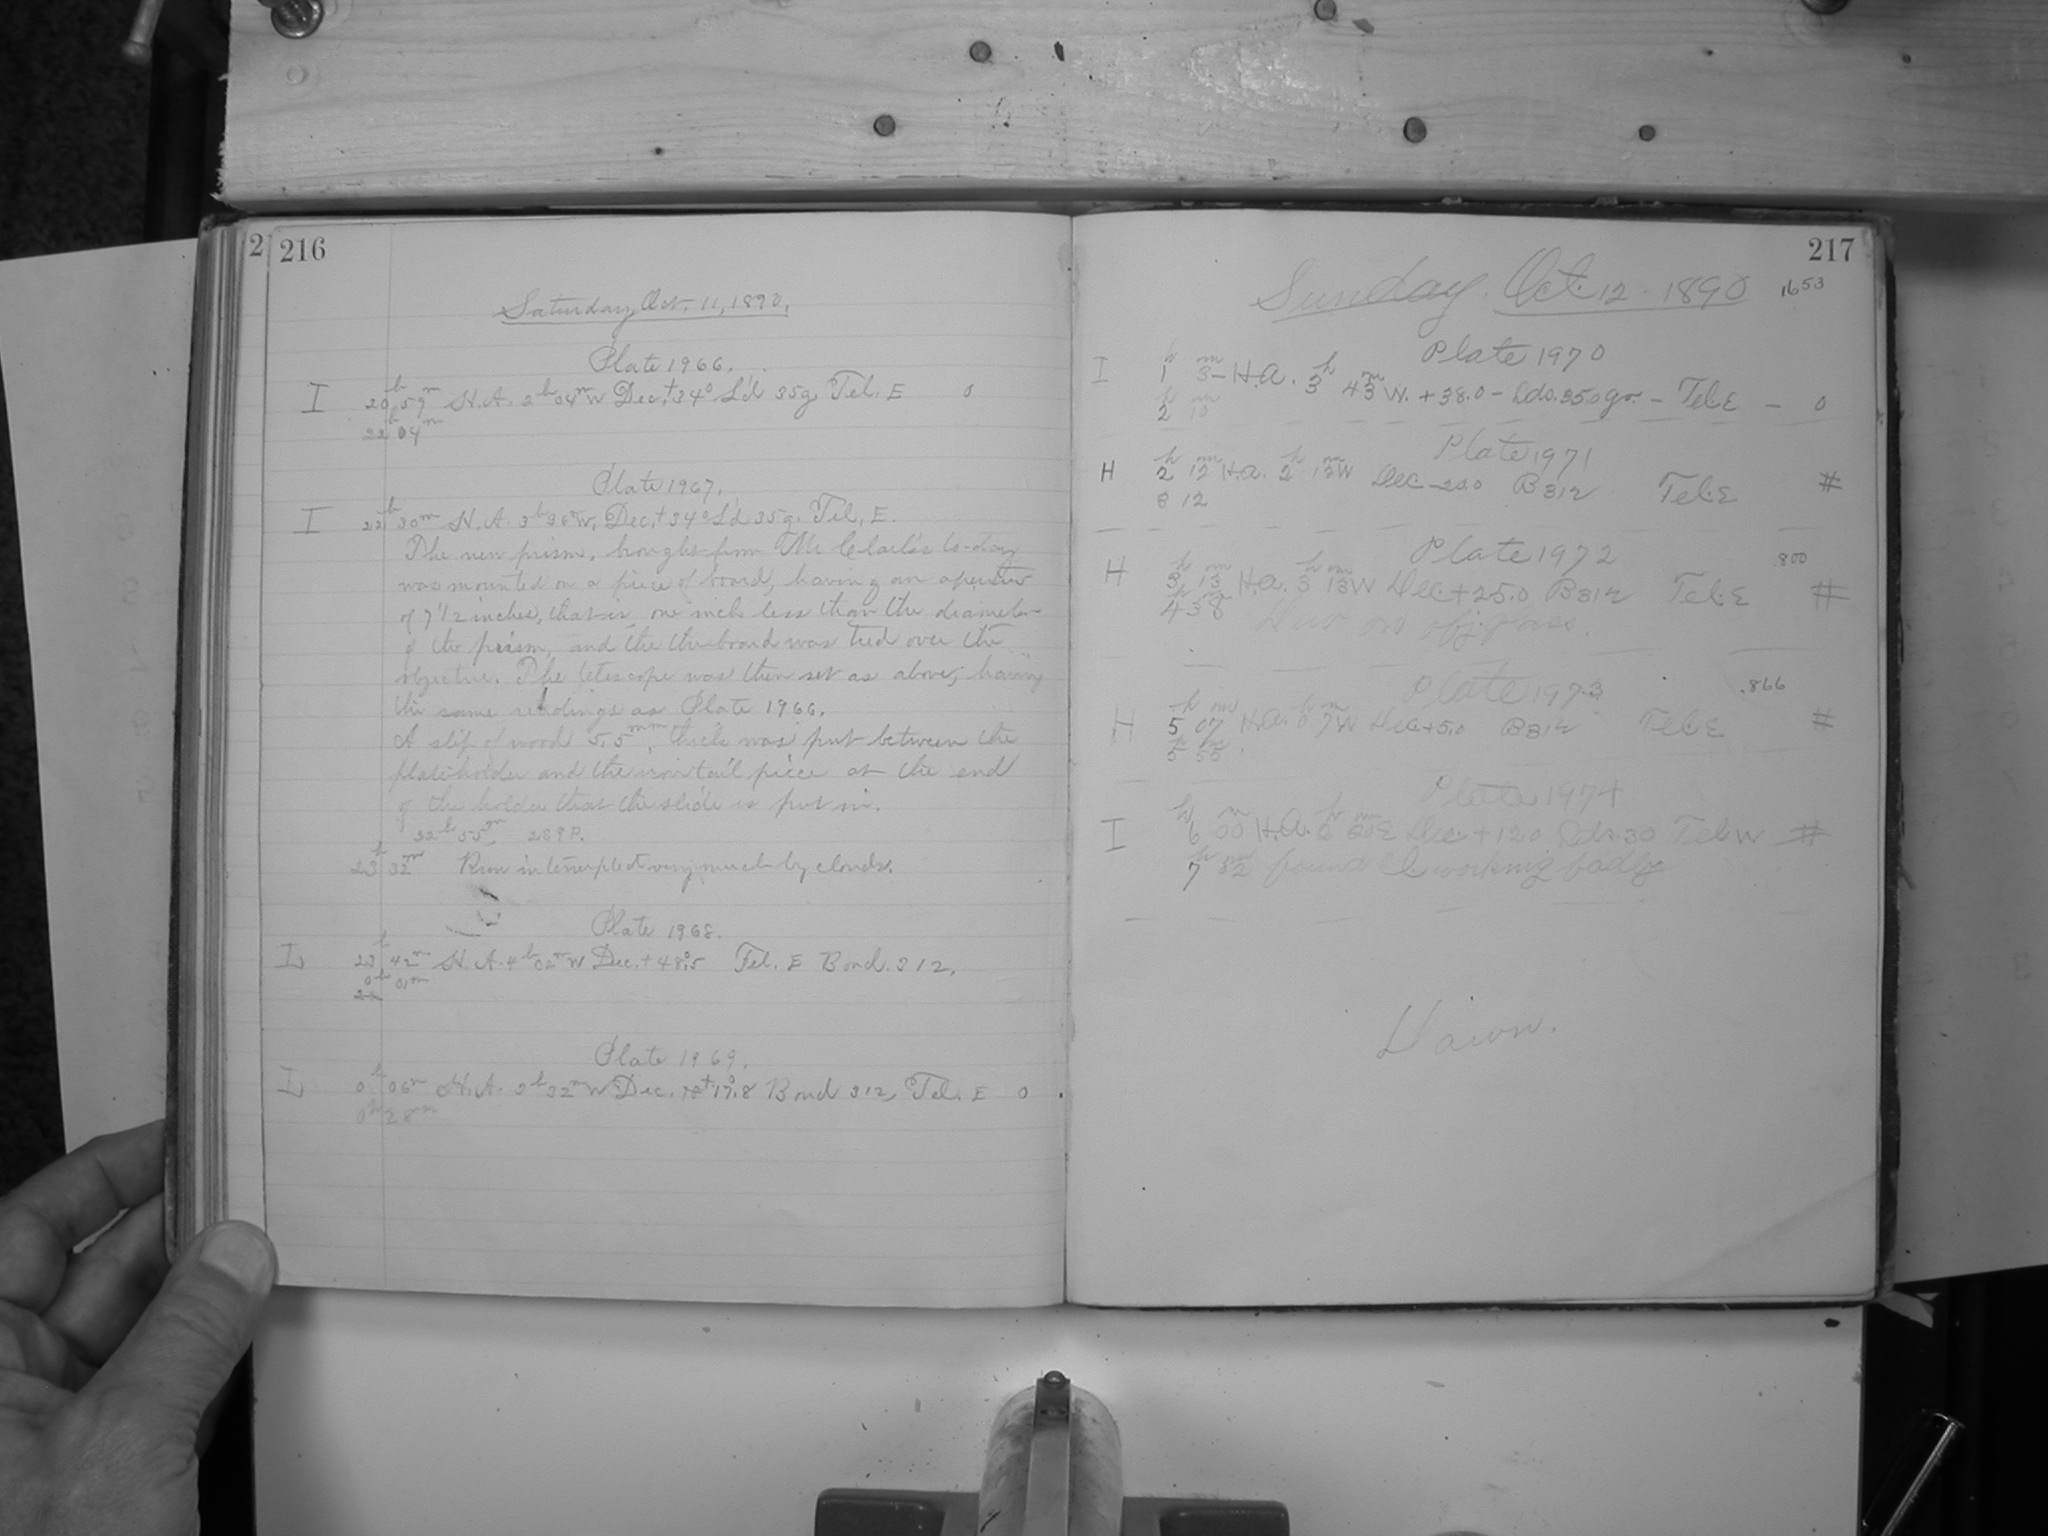 2
216
Saturday, Oct. 11, 1890.
Plate 1966.
I 20h 59m H.A. 2h 04m W Dec. +34° L'd 35g. Tel. E 0
22h 04m
Plate 1967.
I 22h 30m H.A. 3h 36m W. Dec. +34° L'd 35g. Tel. E.
The new prism, bought from Mr Clark's to-day
was mounted on a piece of board, having an aperture
of 7 1/2 inches, that is, one inch less than the diameter
of the prism, and the the board was tied over the
objective. The telescope was then set as above, having
the same readings as Plate 1966.
A slip of wood 5.5mm, thick was put between the
plateholder and the iron tail piece at the end
of the holder that the slide is put in.
22h 55m 289P.
23h 32m Run interrupted very much by clouds.
Plate 1968.
I 23h 42m H.A. 4h 02m W Dec. +48°.5 Tel. E Bond. 312.
0h 01m
Plate 1969.
I 0h 06m H.A. 3h 32m W Dec. +17°.8 Bond 312, Tel. E 0
0h 28m
217
Sunday. Oct. 12 - 1890 1653
Plate 1970
I 1h 3m - H.A. 3h 43m W. +38.0 - Lds. 350 gr. - Tel. E - 0
2h 10m
Plate 1971
H 2h 12m H.A. 2h 12m W Dec - 22.0 B312 Tel. E #
3 12
Plate 1972 .800
H 3h 13m H.A. 3h 13m W Dec. +25.0 B312 Tel. E #
4h 38m Dew on obj glass.
Plate 1973 .866
H 5h 07m H.A. 0h 7m W Dec +5.0 B312 Tel. E #
5h 55m
Plate 1974
I 6h 00m H.A. 2h 20m E Dec. +12.0 Lds. 30 Tel. W #
7h 32m found Cl. working badly
Dawn.